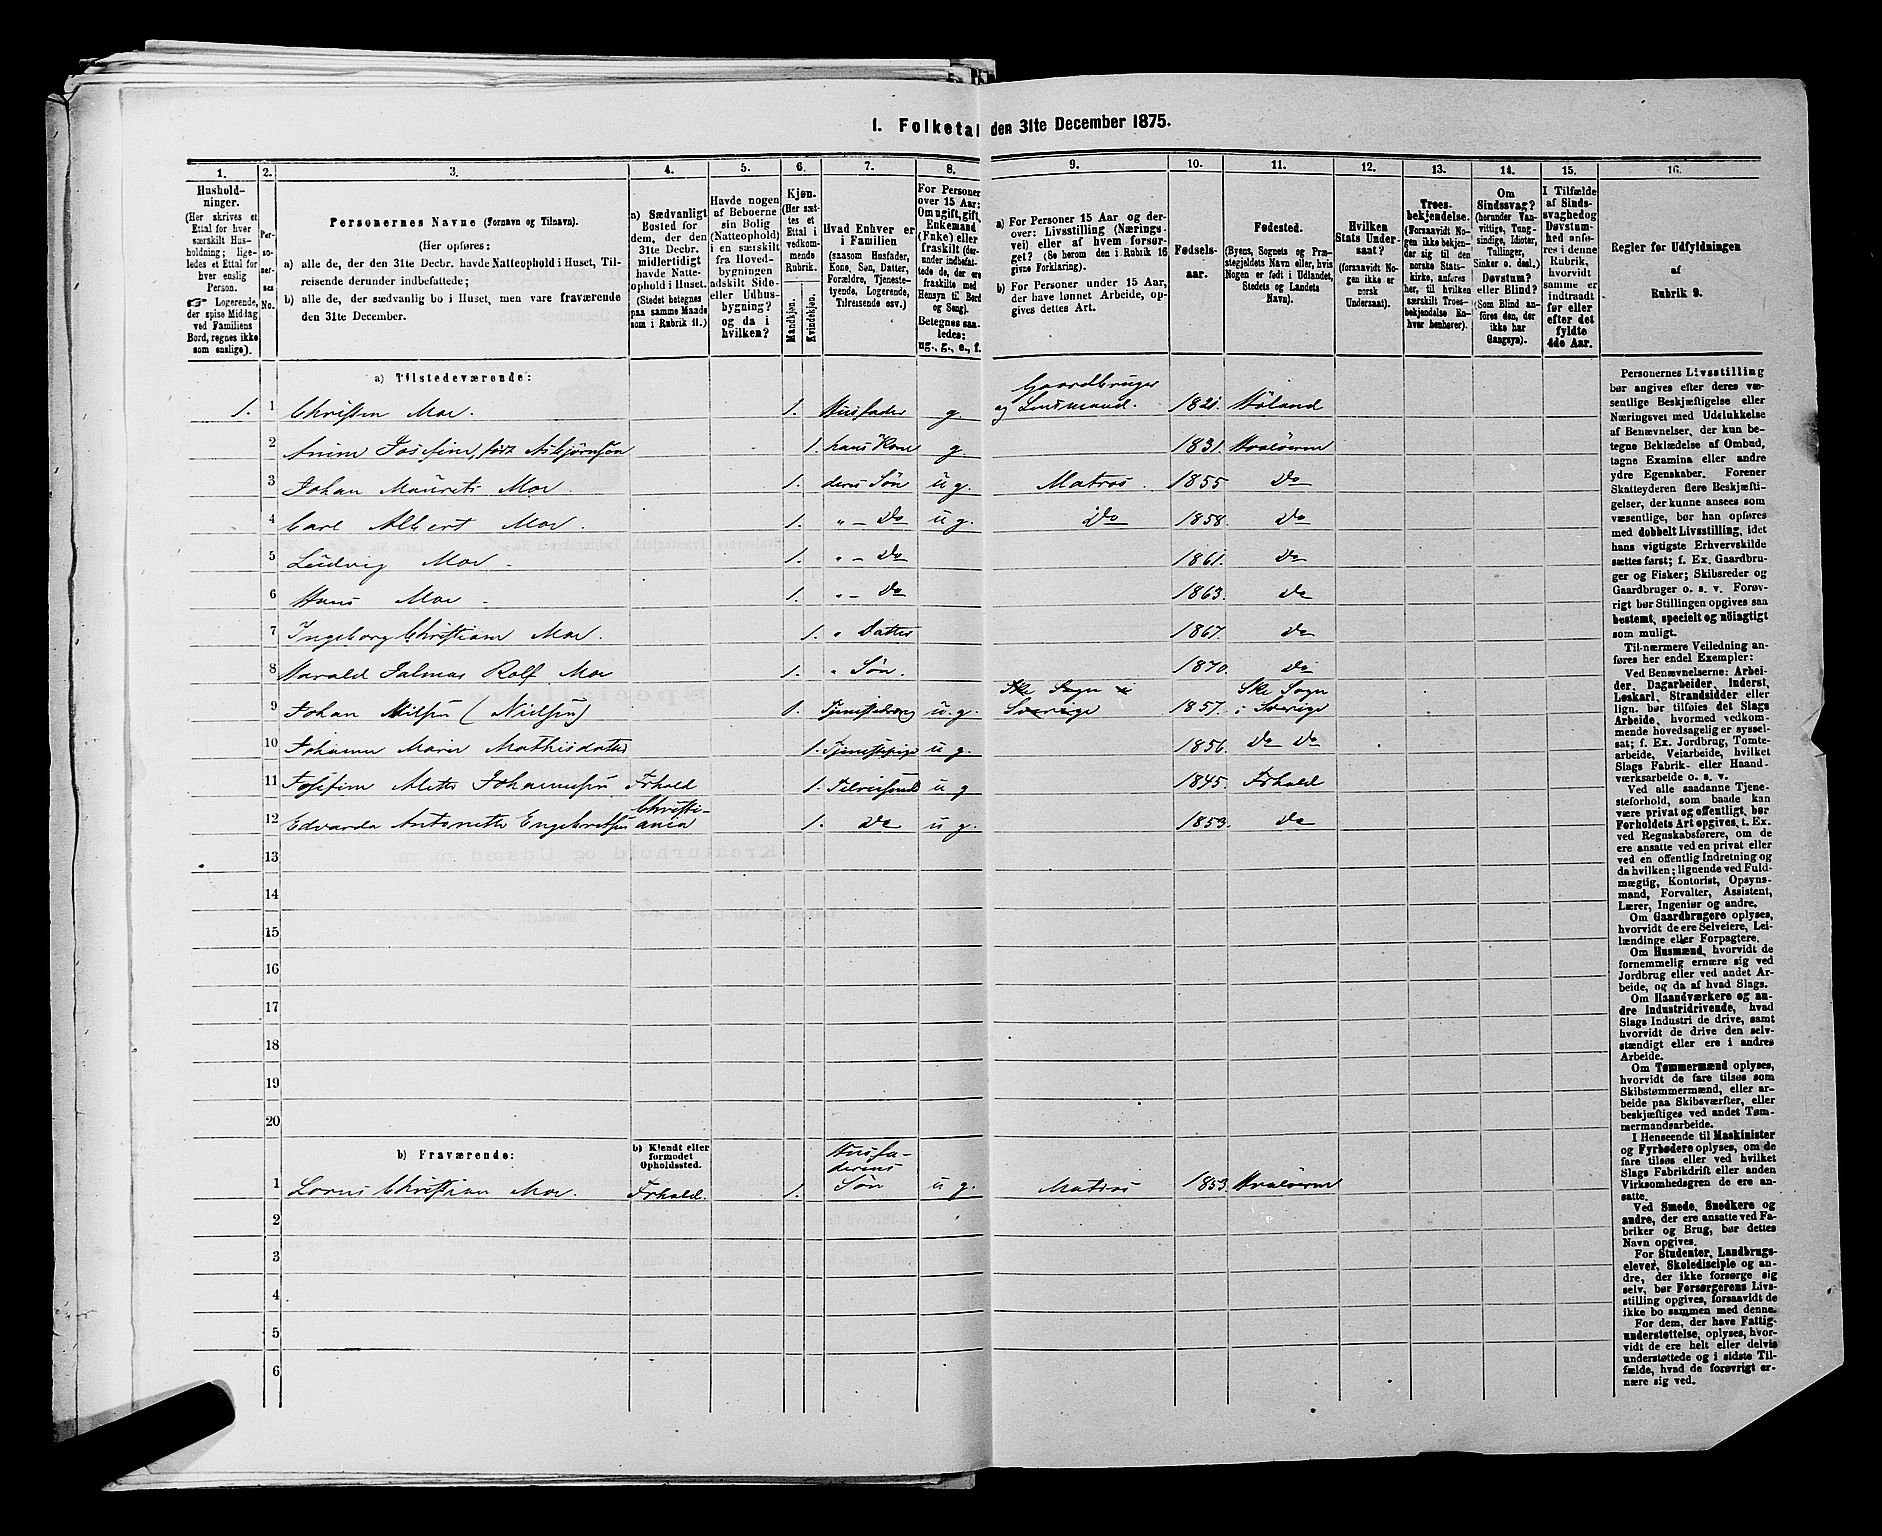 1. Folketal den 31te December 1875.
1. 2. 3. 4. 5. 6. 7. 8. 9. 10. 11. 12. 13. 14. 15. 16.
Hushold-
ninger.
(Her skrives et
Ettal for hver
særskilt Hus-
holdning; lige-
ledes et Ettal for
hver enslig
Person.
☞ Logerende,
der spise Middag
ved Familiens
Bord, regnes ikke
som enslige).
Per-
so-
ner-
nes
No.
Personernes Navne (Fornavn og Tilnavn).
(Her opføres:
a) alle de, der den 31te Decbr. havde Natteophold i Huset, Til-
reisende derunder indbefattede;
b) alle de, der sædvanlig bo i Huset, men vare fraværende
den 31te December.
a) Sædvanligt
Bosted for
dem, der den
31te Decbr.
midlertidigt
havde Natte-
ophold i Huset.
(Stedet betegnes
paa samme Maade
som i Rubrik 11.)
Havde nogen
af Beboerne
sin Bolig
(Natteophold)
i en særskilt
fra Hoved-
bygningen
adskilt Side-
eller Udhus-
bygning?
og da i
hvilken?
Kjøn.
(Her sæt-
tes et
Ettal i
vedkom-
mende
Rubrik.
Mandkjøn.
Kvindekjøn.
Hvad Enhver er
i Familien
(saasom Husfader,
Kone, Søn, Datter,
Forældre, Tjeneste-
tyende, Logerende,
Tilreisende osv.)
For Personer
over 15 Aar:
Om ugift, gift,
Enkemand
(Enke) eller
fraskilt (der-
under indbefat-
tede de, der ere
fraskilte med
Hensyn til Bord
og Seng).
Betegnes saa-
ledes:
ug., g., e., f.
a) For Personer 15 Aar og der-
over: Livsstilling (Nærings-
vei) eller af hvem forsør-
get? (Se herom den i Rubrik 16
givne Forklaring).
b) For Personer under 15 Aar,
der have lønnet Arbeide, op-
gives dettes Art.
Fødsels-
aar.
Fødested.
(Byens, Sognets og Præ-
stegjeldets Navn eller, hvis
Nogen er født i Udlandet,
Stedets og Landets
Navn).
Hvilken
Stats Under-
saat?
(forsaavidt No-
gen ikke er
norsk
Undersaat).
Troes-
bekjendelse.
(Forsaavidt No-
gen ikke bekjen-
der sig til den
norske Stats-
kirke, anføres
her, til hvilken
særskilt Troes-
bekjendelse En-
hver henhører).
Om
Sindssvag?
(herunder Van-
vittige, Tung-
sindige, Idioter,
Tullinger,
Sinker o. desl.)
Døvstum?
eller Blind?
(Som Blind an-
føres den, der
ikke har
Gangsyn).
I Tilfælde
af Sinds-
svaghed og
Døvstum-
hed anfø-
res i denne
Rubrik,
hvorvidt
samme er
indtraadt
før eller
efter det
fyldte
4de Aar.
Regler for Udfyldningen
af
Rubrik 9.
a) Tilstedeværende:
1. 1 Christen Moe. 1. Husfader g. Gaardbruger
og Lensmand. 1821. Høland
2 Anine Josefine, født Asbjørnsen 1. hans Kone g 1831. Hvaløerne
3 Johan Maurits Moe. 1. deres Søn u g. Matros. 1855 Do
4 Carl Albert Moe. 1. " - Do u g. Do 1858. Do
5 Ludvig Moe 1. " - Do 1861. Do
6 Hans Moe 1. " - Do 1863. Do
7 Ingeborg Christiane Moe. 1. " Datter 1867. Do
8 Harald Jalmar Rolf Moe 1. " Søn. 1870. Do
9 Johan Nilsen (Nielsen) 1. Tjenestedreng u. g. Ske Sogn i
Sverige 1857. Ske Sogn
i Sverige
10 Johanne Marie Mathisdatter 1. Tjenestepige u g. 1856. Do Do
11 Josefine Mette Johannesen Frhald 1. Tilreisende u g 1845. Frhald
12 Edvarda Antonette Engebretsen Christi-
ania 1. Do u g. 1853. Do
13
14
15
16
17
18
19
20
b) Fraværende:
b) Kjendt eller
formodet
Opholdssted.
1 Lorens Christian Moe. Frhald. 1. Husfa-
derens
Søn u g. Matros 1853. Hvaløerne
2
3
4
5
6
Personernes Livsstilling
bør angives efter deres væ-
sentlige Beskjæftigelse eller
Næringsvei med Udelukkelse
af Benævnelser, der kun be-
tegne Beklædelse af Ombud,
tagne Examina eller andre
ydre Egenskaber. Forener
Skatteyderen flere Beskjæfti-
gelser, der kunne ansees som
væsentlige, bør han opføres
med dobbelt Livsstilling, idet
hans vigtigste Erhvervskilde
sættes først; f. Ex. Gaardbru-
ger og Fisker; Skibsreder og
Gaardbruger o. s. v. Forøv-
rigt bør Stillingen opgives saa
bestemt, specielt og nöiagtigt
som muligt.
Til nærmere Veiledning an-
føres her endel Exempler:
Ved Benævnelserne: Arbei-
der, Dagarbeider, Inderst,
Løskarl, Strandsidder eller
lign. bør tilføies det Slags
Arbeide, hvormed vedkom-
mende hovedsagelig er syssel-
sat; f. Ex. Jordbrug, Tomte-
arbeide, Veiarbeide, hvilket
Slags Fabrik- eller Haand-
værksarbeide o. s. v.
Ved alle saadanne Tjene-
steforhold, som baade kan
være privat og offentligt, bør
Forholdets Art opgives, t. Ex.
ved Regnskabsførere, om de
ere ansatte ved en privat eller
ved en offentlig Indretning og
da hvilken; lignende ved Fuld-
mægtig, Kontorist, Opsyns-
mand, Forvalter, Assistent,
Lærer, Ingeniør og andre.
Om Gaardbrugere oplyses,
hvorvidt de ere Selveiere, Lei-
lændinge eller Forpagtere.
Om Husmænd, hvorvidt de
fornemmelig ernære sig ved
Jordbrug eller ved andet Ar-
beide, og da af hvad Slags.
Om Haandværkere og an-
dre Industridrivende, hvad
Slags Industri de drive, samt
hvorvidt de drive den selv-
stændigt eller ere i andres
Arbeide.
Om Tømmermænd oplyses,
hvorvidt de fare tilsøs som
Skibstømmermænd, eller ar-
beide paa Skibsværfter, eller
beskjæftiges ved andet Tøm-
mermandsarbeide.
I Henseende til Maskinister
og Fyrbødere oplyses, om de
fare tilsøs eller ved hvilket
Slags Fabrikdrift eller anden
Virksomhedsgren de ere an-
satte.
Ved Smede, Snedkere og
andre, der ere ansatte ved Fa-
briker og Brug, bør dettes
Navn opgives.
For Studenter, Landbrugs-
elever, Skoledisciple og an-
dre, der ikke forsørge sig
selv, bør Forsørgerens Livs-
stilling opgives, forsaavidt de
ikke bo sammen med denne.
For dem, der have Fattig-
understøttelse, oplyses, hvor-
vidt de ere helt eller delvis
understøttede og i sidste Til-
fælde, hvad de forøvrigt er-
nære sig ved.